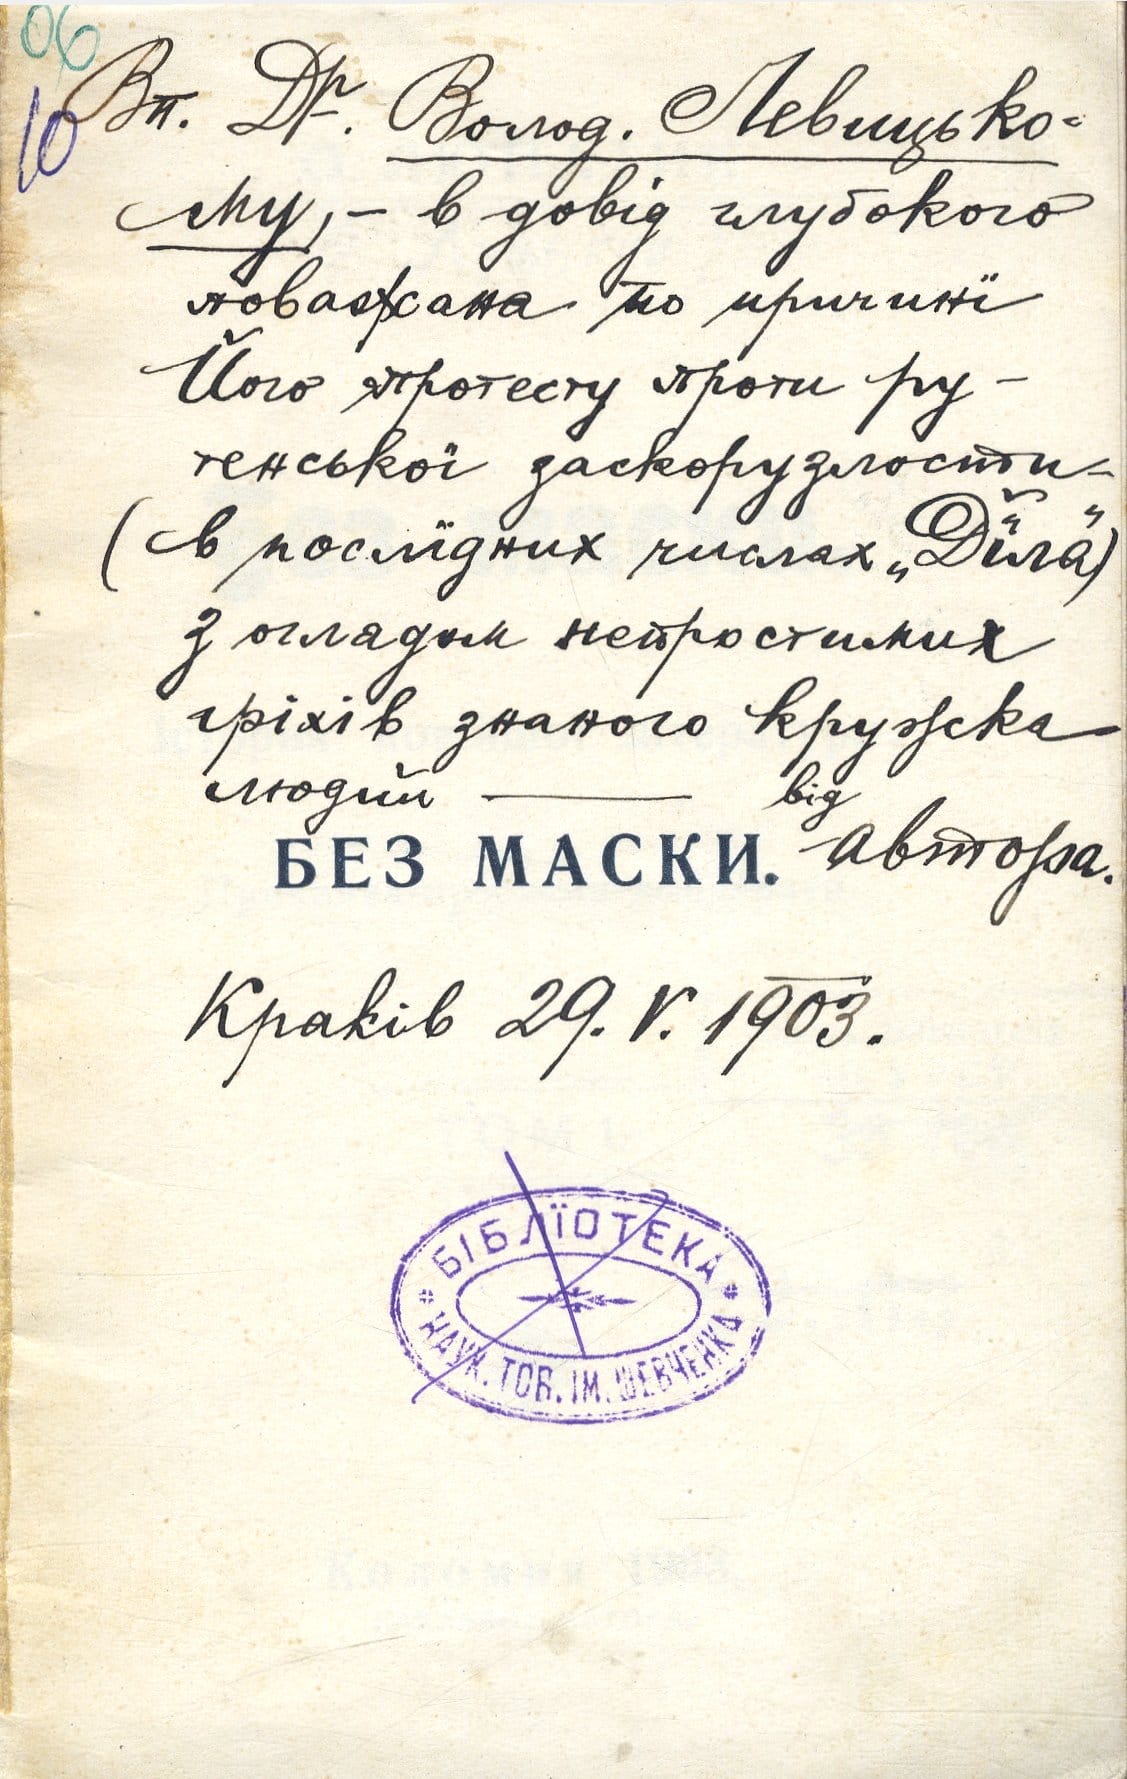 06
10
Вп. Др. Волод. Левицько-
му, – в довід глубокого
поважана по причинї
Його протесту проти ру-
тенської заскорузлости –
(в послїдних числах „Дїла")
з оглядом непростимих
гріхів знаного кружка
людий —— від
автора.
БЕЗ МАСКИ.
Краків 29. V. 1903.
БІБЛЇОТЕКА
НАУК. ТОВ. ІМ. ШЕВЧЕНКА